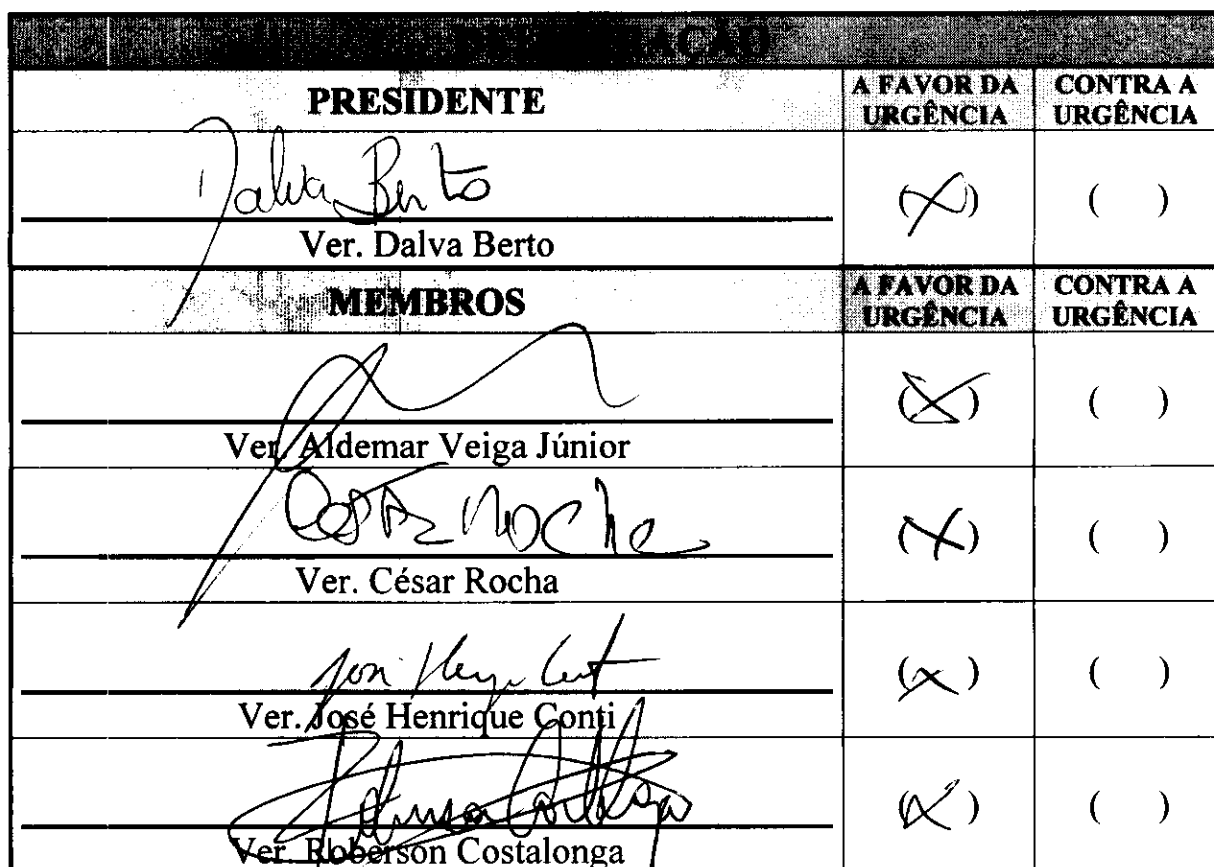 PRESIDENTE A FAVOR DA URGÊNCIA CONTRA A URGÊNCIA
Dalva Berto (X) ( )
Ver. Dalva Berto
MEMBROS A FAVOR DA URGÊNCIA CONTRA A URGÊNCIA
(X) ( )
Ver. Aldemar Veiga Júnior
(X) ( )
Ver. César Rocha
(X) ( )
Ver. José Henrique Conti
(X) ( )
Ver. Roberson Costalonga